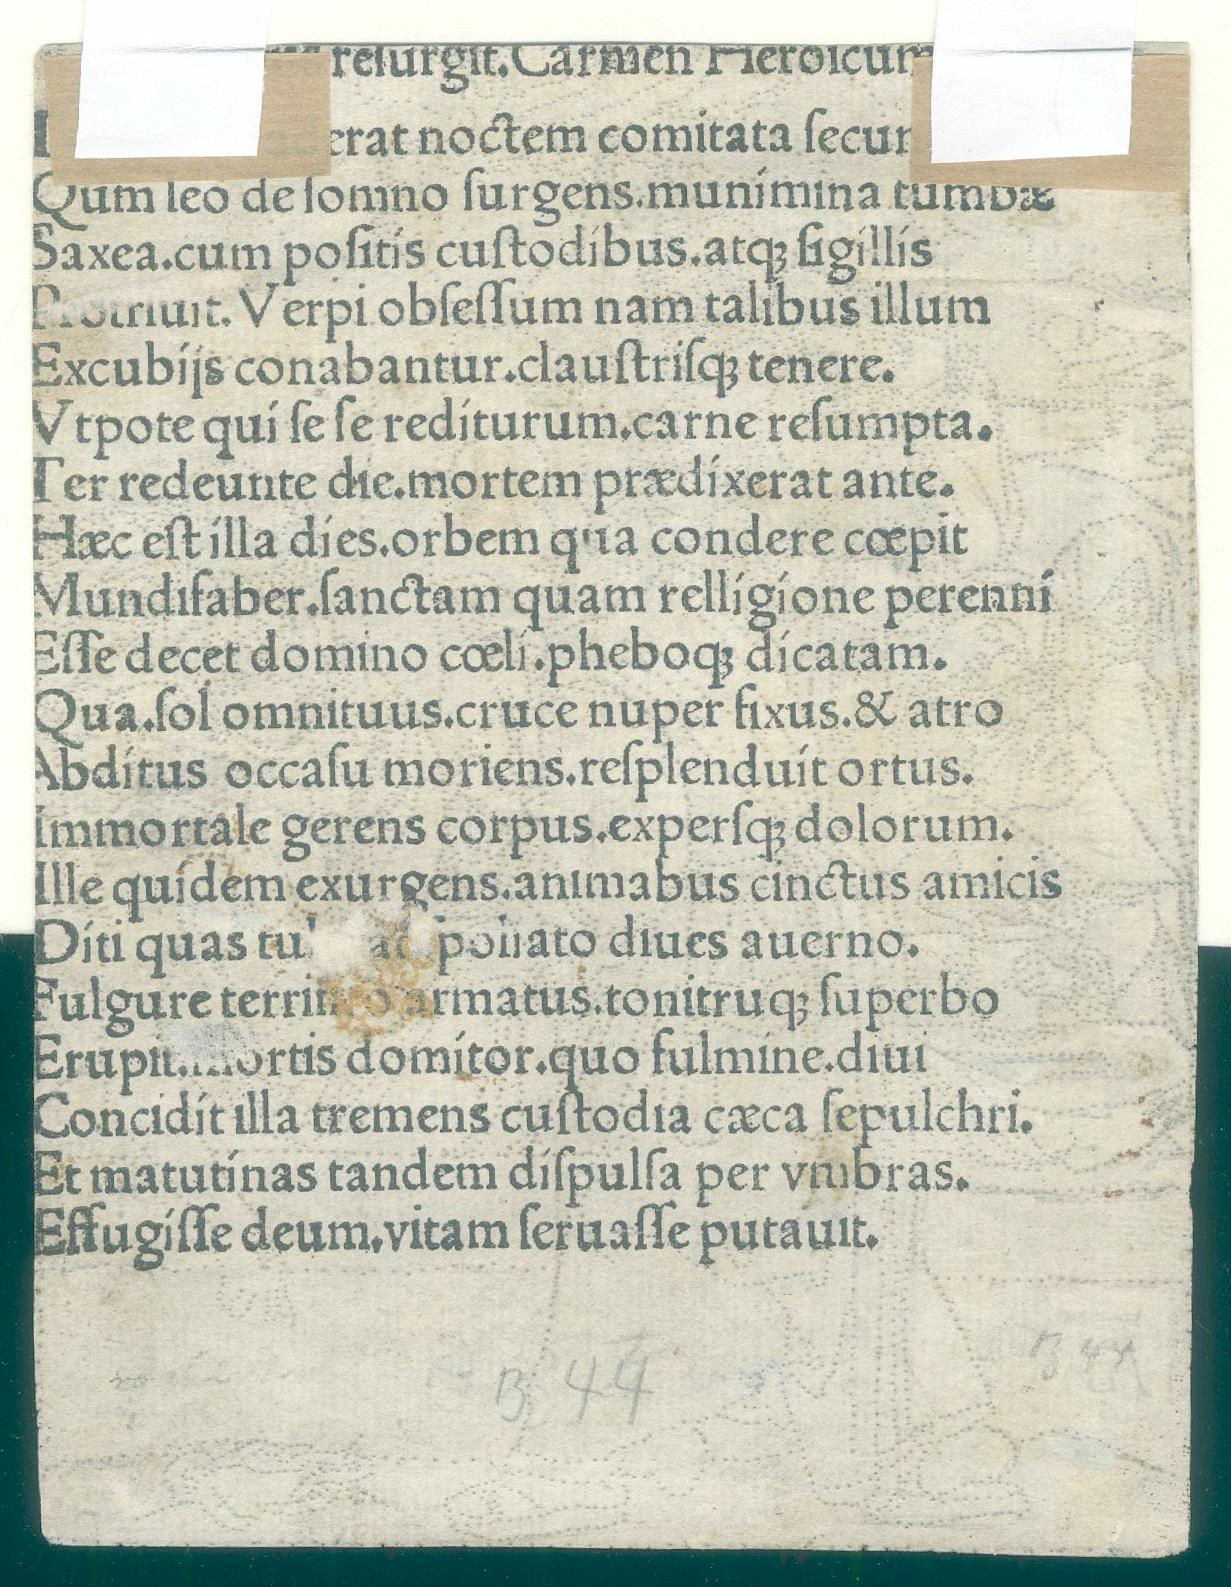 resurgit. Carmen Heroicum
erat noctem comitata secun
Qum leo de somno surgens. munimina tumbæ
Saxea. cum positis custodibus. atqꝫ sigillis
Protriuit. Verpi obsessum nam talibus illum
Excubijs conabantur. claustrisqꝫ tenere.
Vtpote qui se se rediturum. carne resumpta.
Ter redeunte die. mortem prædixerat ante.
Hæc est illa dies. orbem qua condere cœpit
Mundifaber. sanctam quam relligione perenni
Esse decet domino cœli. pheboqꝫ dicatam.
Qua. sol omnituus. cruce nuper fixus. & atro
Abditus occasu moriens. resplenduit ortus.
Immortale gerens corpus. expersqꝫ dolorum.
Ille quidem exurgens. animabus cinctus amicis
Diti quas spoliato diues auerno.
Fulgure armatus. tonitruqꝫ superbo
Erupit. mortis domitor. quo fulmine. diui
Concidit illa tremens custodia cæca sepulchri.
Et matutinas tandem dispulsa per vmbras.
Effugisse deum. vitam seruasse putauit.
B 44
B 44